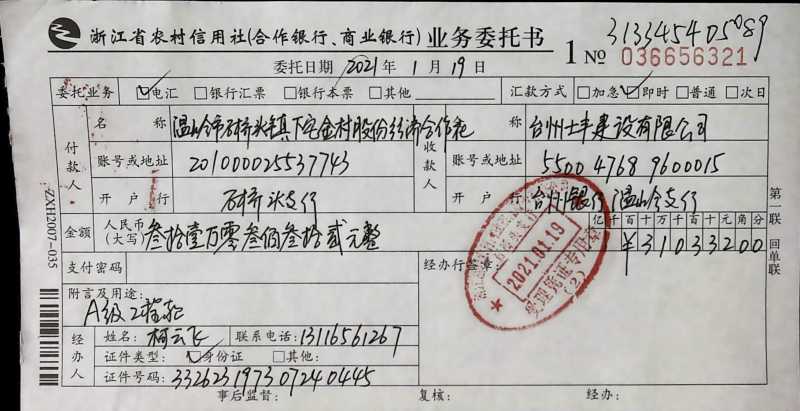 浙江省农村信用社(合作银行、商业银行)业务委托书
1 № 036656321
31334540 5089
委托日期 2021年 1月 19日
委托业务 ☑电汇 □银行汇票 □银行本票 □其他 汇款方式 □加急 ☑即时 □普通 □次日
付款人
名称 温岭市石桥头镇下宅金村股份经济合作社
账号或地址 201000025537743
开户行 石桥头支行
收款人
称 台州士丰建设有限公司
账号或地址 5500 4768 9600015
开户行 台州银行温岭支行
金额 人民币(大写) 叁拾壹万零叁佰叁拾贰元整
亿千百十万千百十元角分
¥31033200
支付密码
经办行签章:
2021.01.19
受理凭证专用章
(2)
附言及用途:
A级
经办人
姓名: 柯云飞 联系电话: 13116561267
证件类型: ☑身份证 □其他:
证件号码: 332623197307240445
事后监督: 复核: 经办:
第一联 回单联
ZXH2007-035